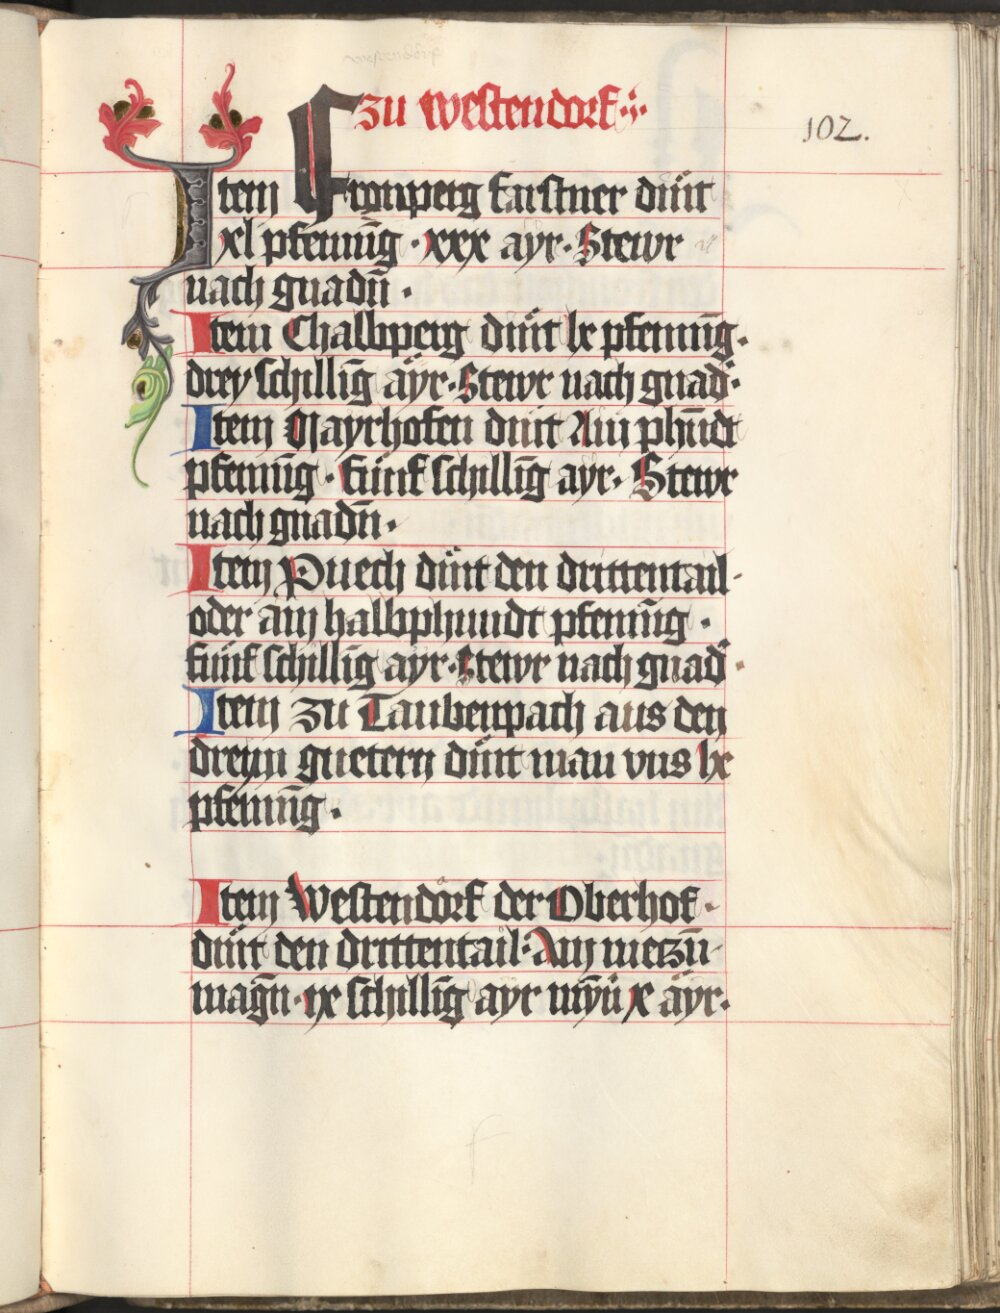 westendorf
zu westendorf
102.
Item Fronperg karstner dint
xl pfenning · xxx ayr · Stewr
nach gnadn̄ ·
Item Chalbperg dint lx pfennīg ·
drey schillīg ayr · Stewr nach gnad ·
Item Mayrhofen dint Ain phūdt
pfennīg · funf schillīg ayr · Stewr
nach gnadn̄ ·
Item Puech dint den drittentail
oder ain halbphundt pfennīg ·
funf schillīg ayr · Stewr nach gnad
Item zu Taubenpach aus den
dreyn guetern dint man vns lx
pfennīg ·
Item Westendarf der Oberhof ·
dint den drittentail · Ain metzn̄
magn̄ · ix schillīg ayr myn̄ x ayr ·